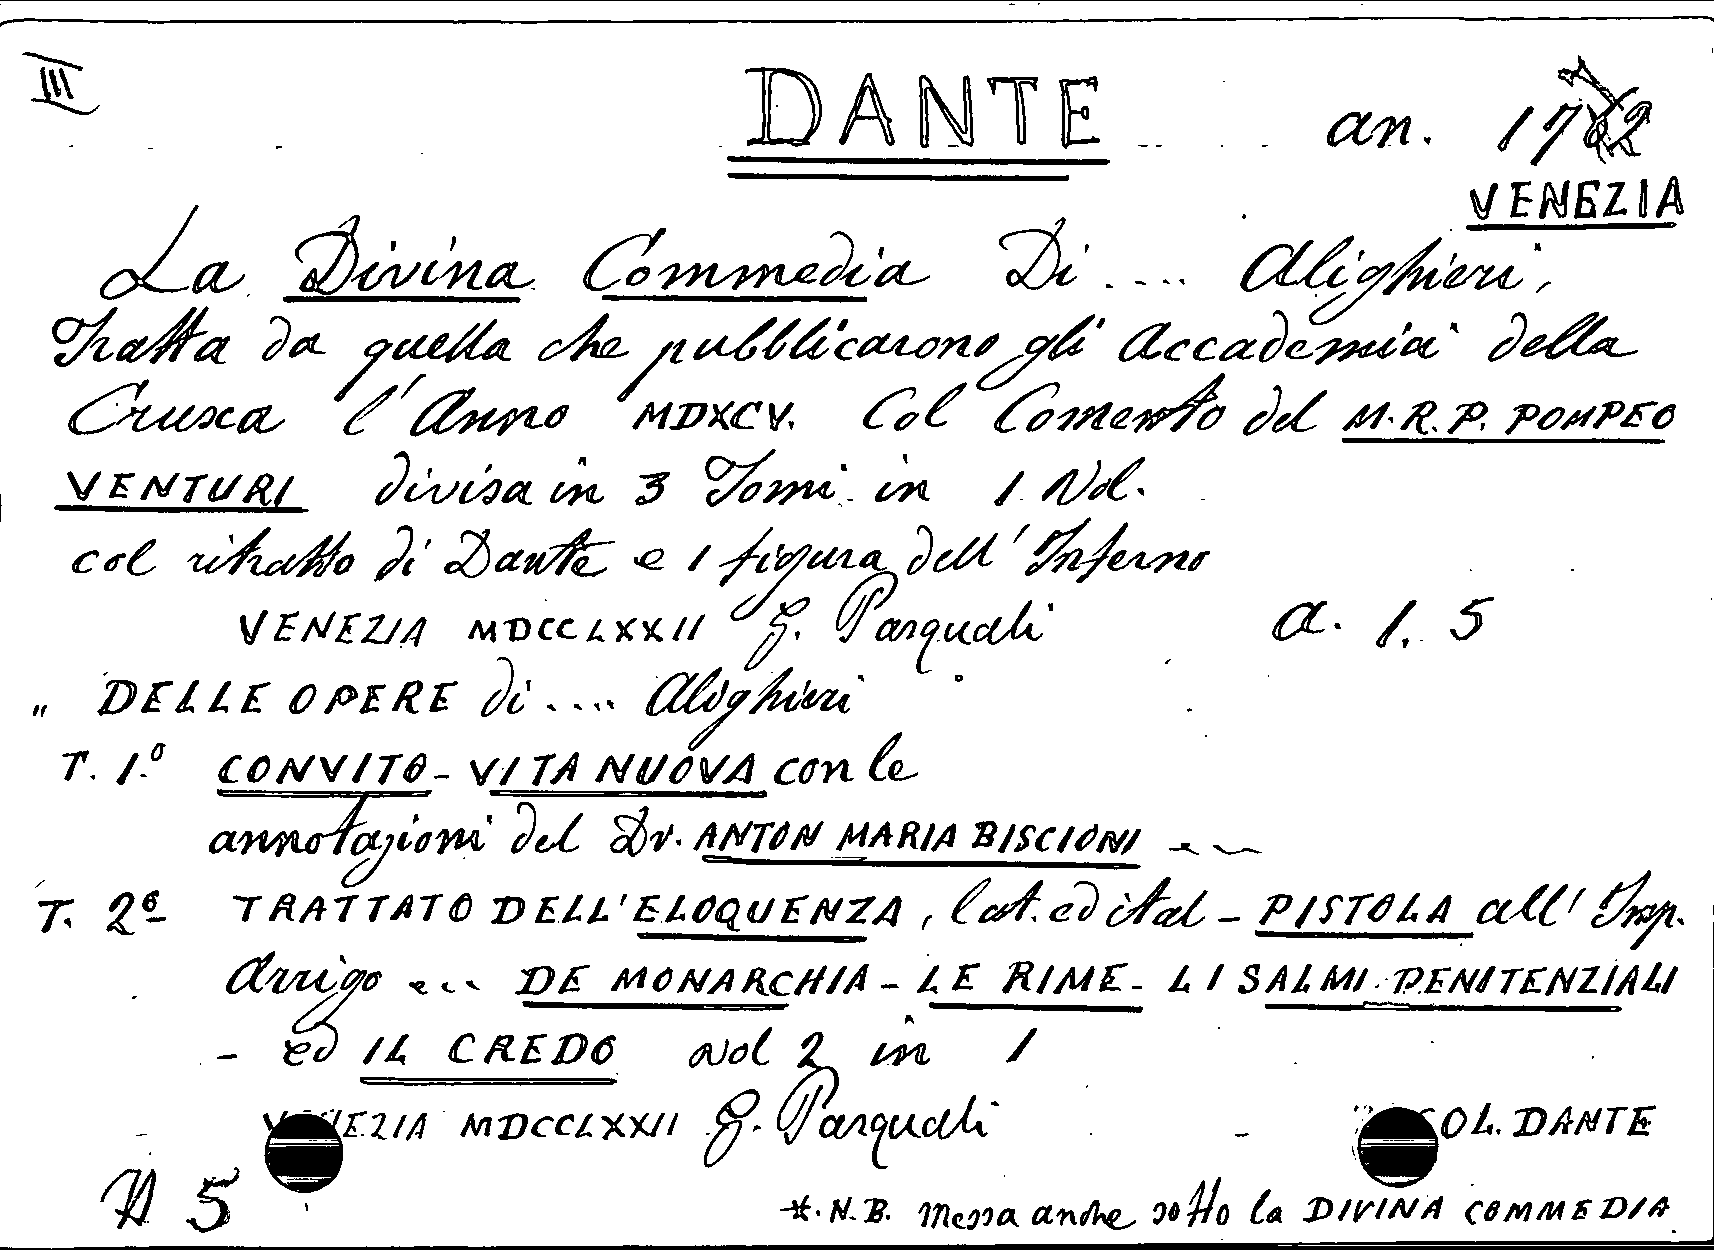 III
DANTE an. 1772
VENEZIA
La Divina Commedia Di .... Alighieri,
Tratta da quella che pubblicarono gli Accademici della
Crusca l'Anno MDXCV. Col Comento del M.R.P. POMPEO
VENTURI divisa in 3 Tomi in 1 Vol.
col ritratto di Dante e 1 figura dell'Inferno
VENEZIA MDCCLXXII G. Pasquali a. 1. 5
" DELLE OPERE di .... Alighieri
T. 1.º CONVITO - VITA NUOVA con le
annotazioni del Dr. ANTON MARIA BISCIONI ---
T. 2º TRATTATO DELL'ELOQUENZA, lat. ed ital - PISTOLA all'Imp.
Arrigo ... DE MONARCHIA - LE RIME - LI SALMI PENITENZIALI
- ed IL CREDO vol 2 in 1
VENEZIA MDCCLXXII G. Pasquali - COL. DANTE
A 5
*. N.B. Messa anche sotto la DIVINA COMMEDIA